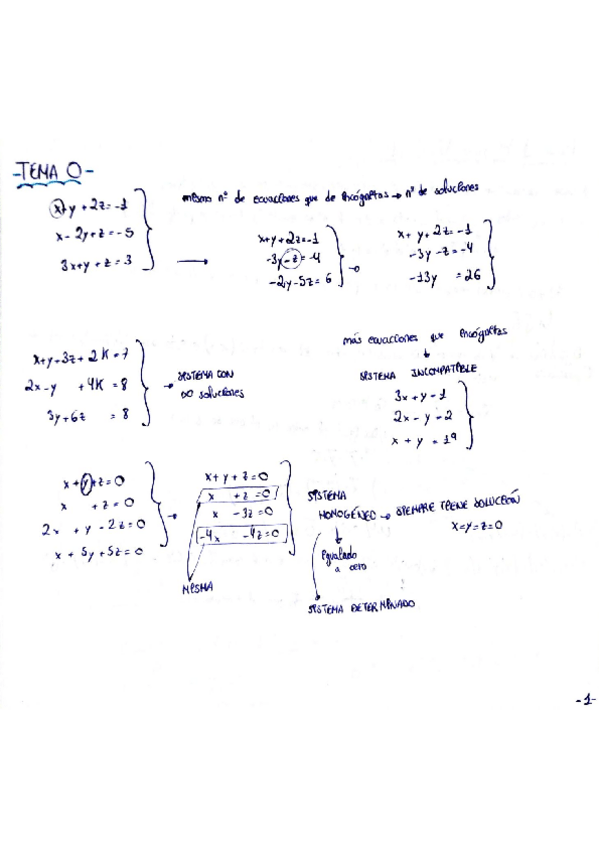 -TEMA 0-
mismo nº de ecuaciones que de incógnitas → nº de soluciones
x+y+2z=-1
x-2y+z=-5
3x+y+z=3
→
x+y+2z=-1
-3y-z=-4
-2y-5z=6
→
x+y+2z=-1
-3y-z=-4
-13y =26
x+y-3z+2K=7
2x-y +4K=8
3y+6z =8
→ SISTEMA CON
∞ soluciones
más ecuaciones que incógnitas
↓
SISTEMA INCOMPATIBLE
3x+y=1
2x-y=2
x+y=19
x+y+z=0
x +z=0
2x+y-2z=0
x+5y+5z=0
→
x+y+z=0
x +z=0
x -3z=0
-4x -4z=0
MISMA
SISTEMA
HOMOGÉNEO → SIEMPRE TIENE SOLUCIÓN
x=y=z=0
↓
igualado
a cero
SISTEMA DETERMINADO
-1-